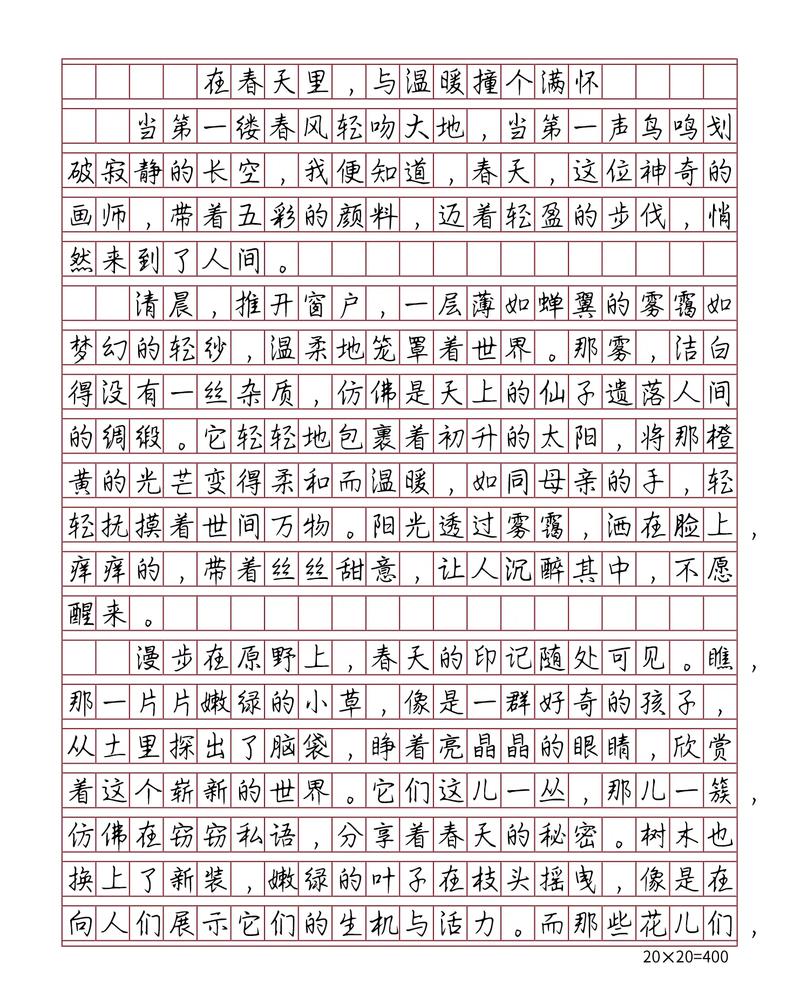 在春天里，与温暖撞个满怀
当第一缕春风轻吻大地，当第一声鸟鸣划
破寂静的长空，我便知道，春天，这位神奇的
画师，带着五彩的颜料，迈着轻盈的步伐，悄
然来到了人间。
清晨，推开窗户，一层薄如蝉翼的雾霭如
梦幻的轻纱，温柔地笼罩着世界。那雾，洁白
得没有一丝杂质，仿佛是天上的仙子遗落人间
的绸缎。它轻轻地包裹着初升的太阳，将那橙
黄的光芒变得柔和而温暖，如同母亲的手，轻
轻抚摸着世间万物。阳光透过雾霭，洒在脸上，
痒痒的，带着丝丝甜意，让人沉醉其中，不愿
醒来。
漫步在原野上，春天的印记随处可见。瞧，
那一片片嫩绿的小草，像是一群好奇的孩子，
从土里探出了脑袋，睁着亮晶晶的眼睛，欣赏
着这个崭新的世界。它们这儿一丛，那儿一簇，
仿佛在窃窃私语，分享着春天的秘密。树木也
换上了新装，嫩绿的叶子在枝头摇曳，像是在
向人们展示它们的生机与活力。而那些花儿们，
20×20=400